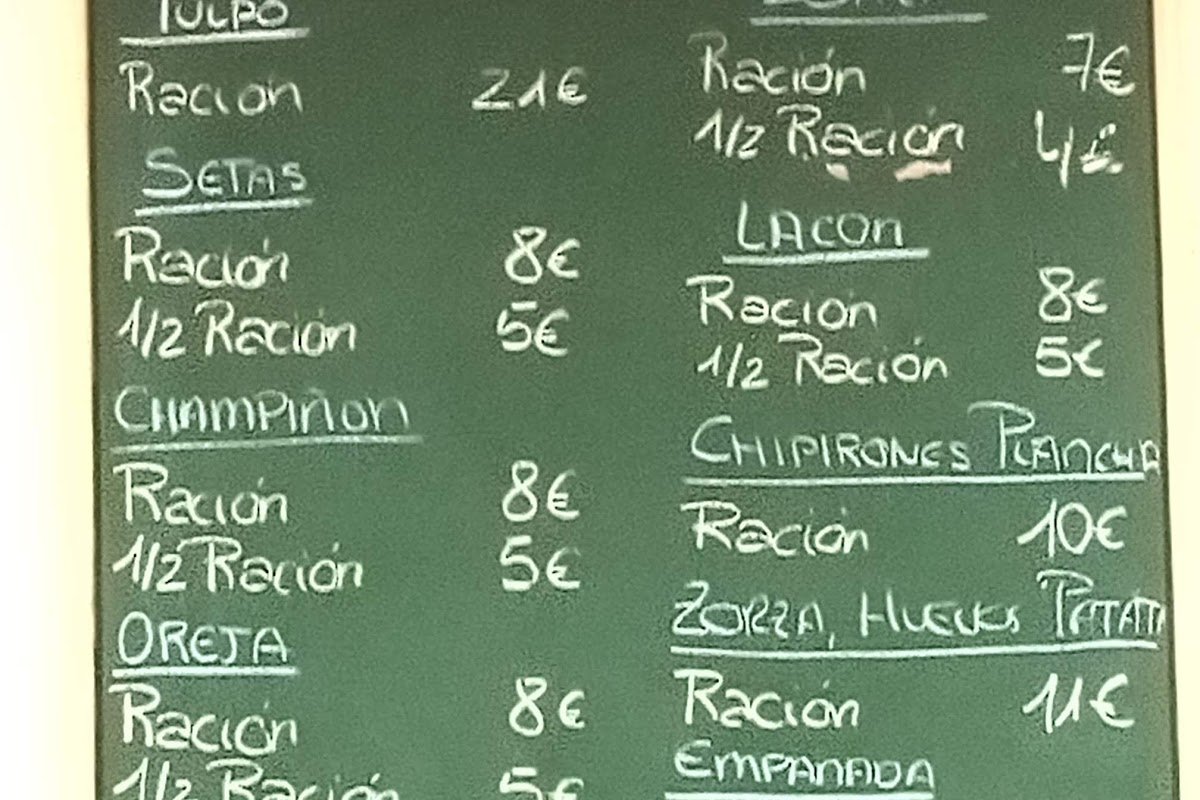 PULPO
Ración 21€
SETAS
Ración 8€
1/2 Ración 5€
CHAMPIÑON
Ración 8€
1/2 Ración 5€
OREJA
Ración 8€
1/2 Ración 5€
Ración 7€
1/2 Ración 4€
LACON
Ración 8€
1/2 Ración 5€
CHIPIRONES PLANCHA
Ración 10€
ZORZA, HUEVOS PATATA
Ración 11€
EMPANADA